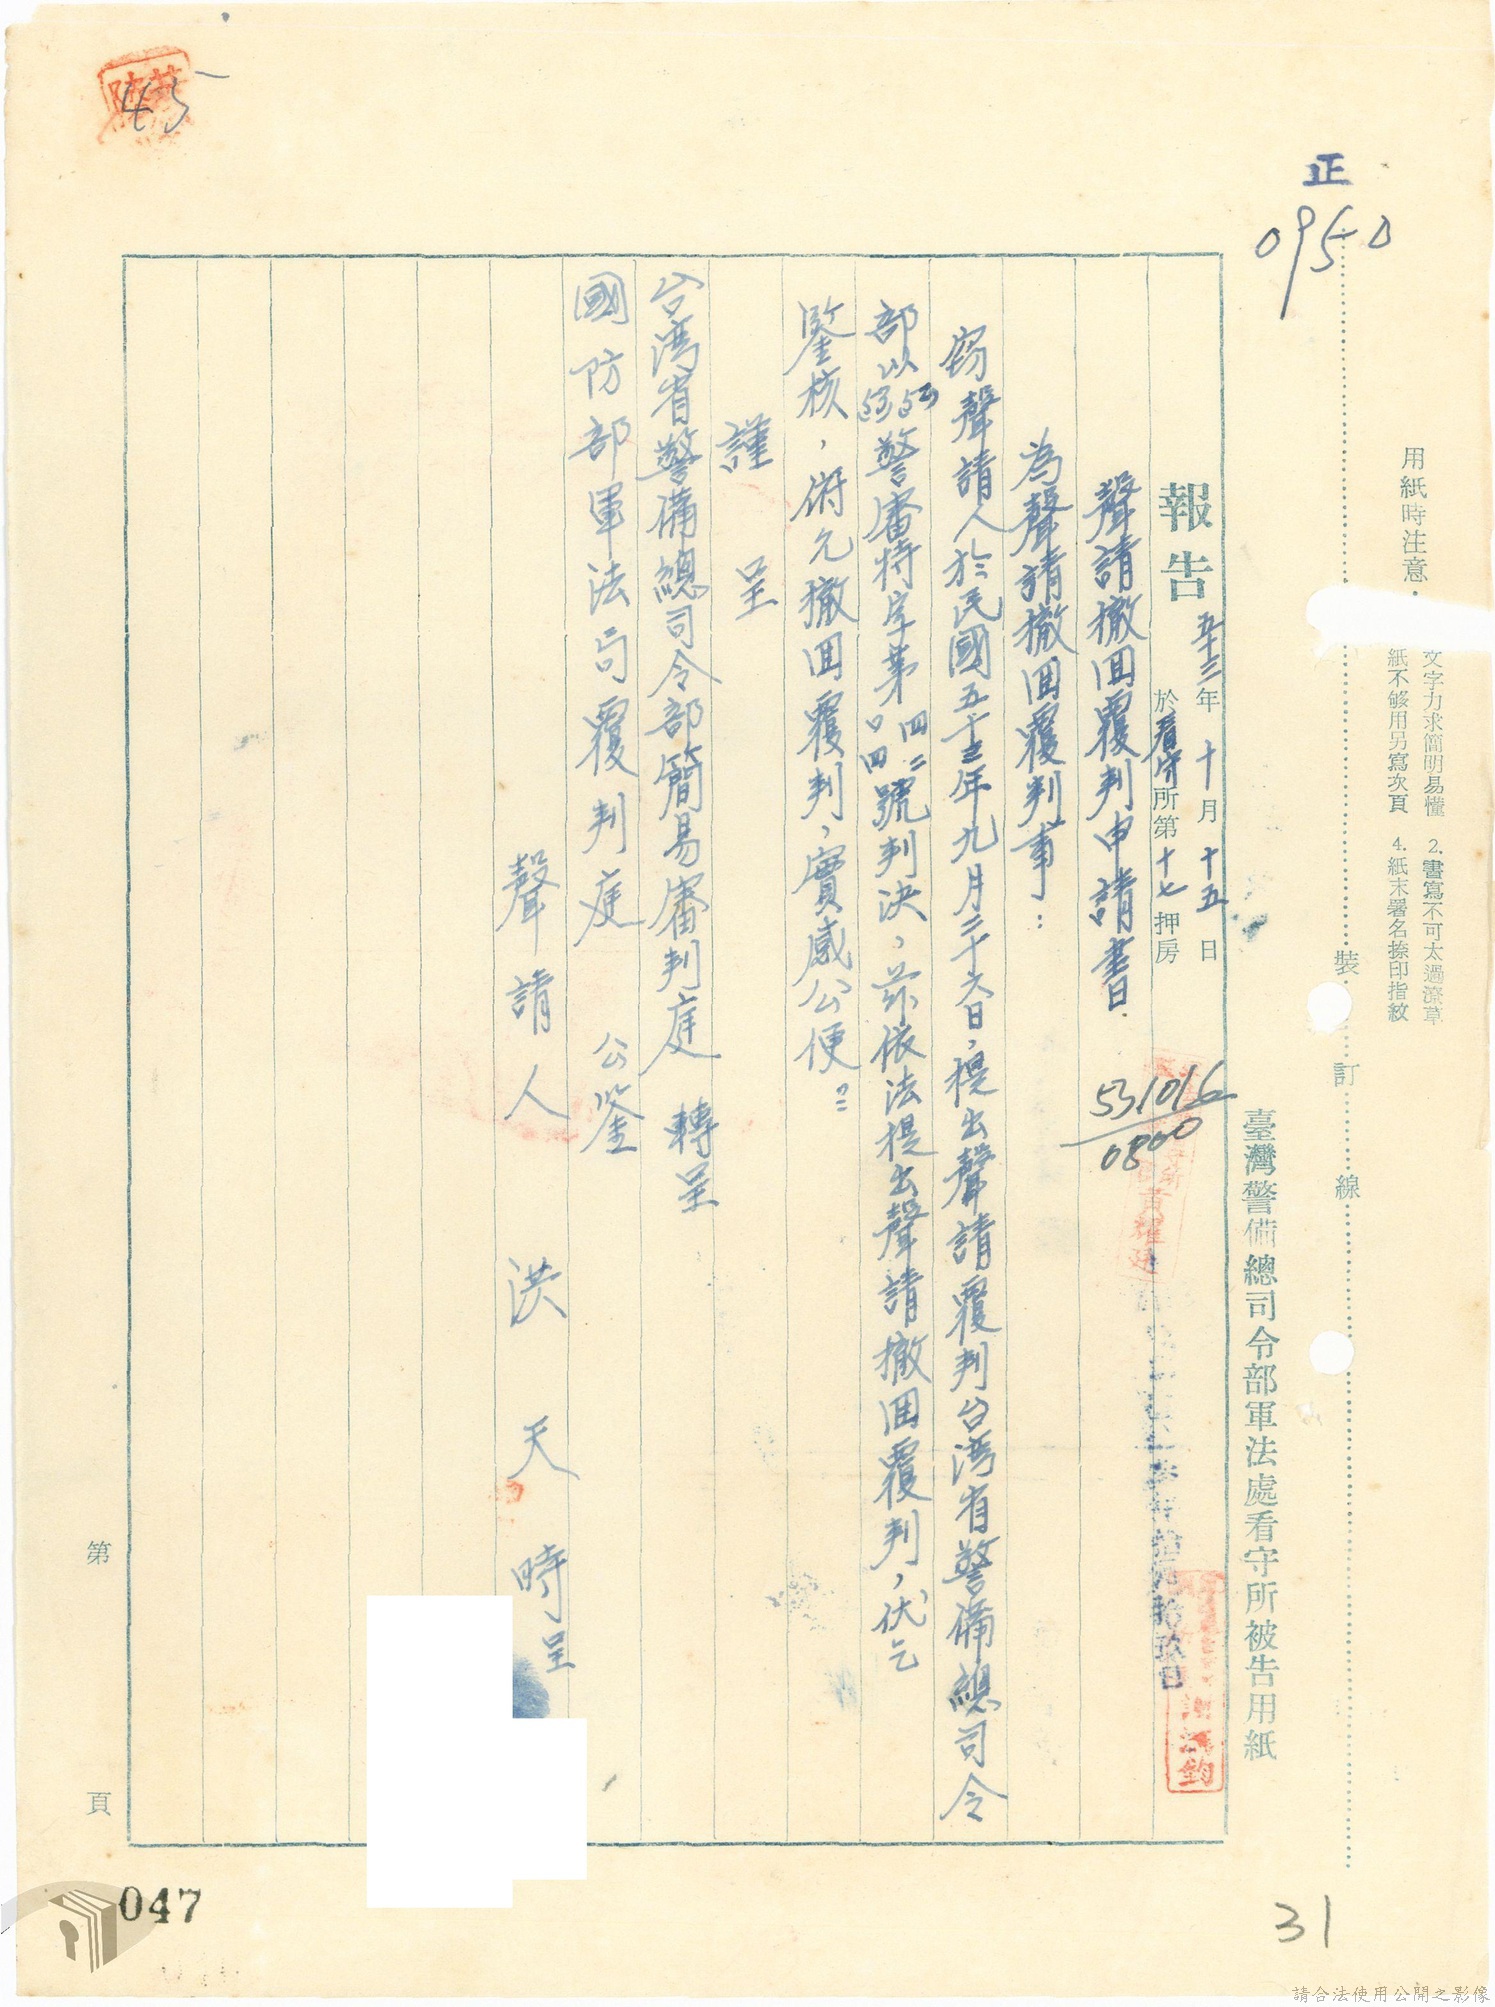 正
0950
用紙時注意
文字力求簡明易懂 2.書寫不可太過潦草
紙不够用另寫次頁 4.紙末署名捺印指紋
裝訂線
臺灣警備總司令部軍法處看守所被告用紙
報告 五十三年十月十五日
於看守所第十七押房
531016
0800
黃耀廷
聲請撤回覆判申請書
為聲請撤回覆判事：
竊聲請人於民國五十三年九月二十六日，提出聲請覆判台湾省警備總司令
部以53 53警審特字第四二〇四號判決，茲依法提出聲請撤回覆判，伏乞
鑒核，俯允撤回覆判，實感公便。
謹呈
台湾省警備總司令部簡易審判庭 轉呈
國防部軍法局覆判庭 公鑒
聲請人 洪天時呈
第 頁
45
047
31
請合法使用公開之影像